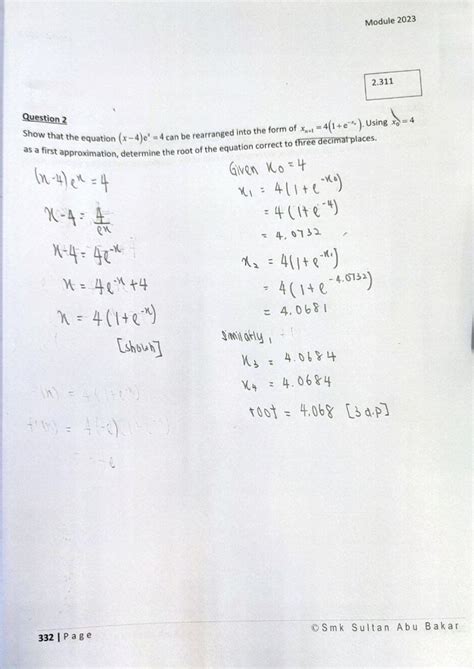 Module 2023
2.311
Question 2
Show that the equation (x−4)eˣ = 4 can be rearranged into the form of xₙ₊₁ = 4(1+e^(−xₙ)). Using x₀ = 4
as a first approximation, determine the root of the equation correct to three decimal places.
(x-4)eˣ = 4
x-4 = 4/eˣ
x-4 = 4e^(-x)
x = 4e^(-x) + 4
x = 4(1+e^(-x))
[shown]
Given x₀ = 4
x₁ = 4(1+e^(-x₀))
= 4(1+e^(-4))
= 4.0732
x₂ = 4(1+e^(-x₁))
= 4(1+e^(-4.0732))
= 4.0681
Similarly,
x₃ = 4.0684
x₄ = 4.0684
root = 4.068 [3 d.p]
332 | Page
©Smk Sultan Abu Bakar